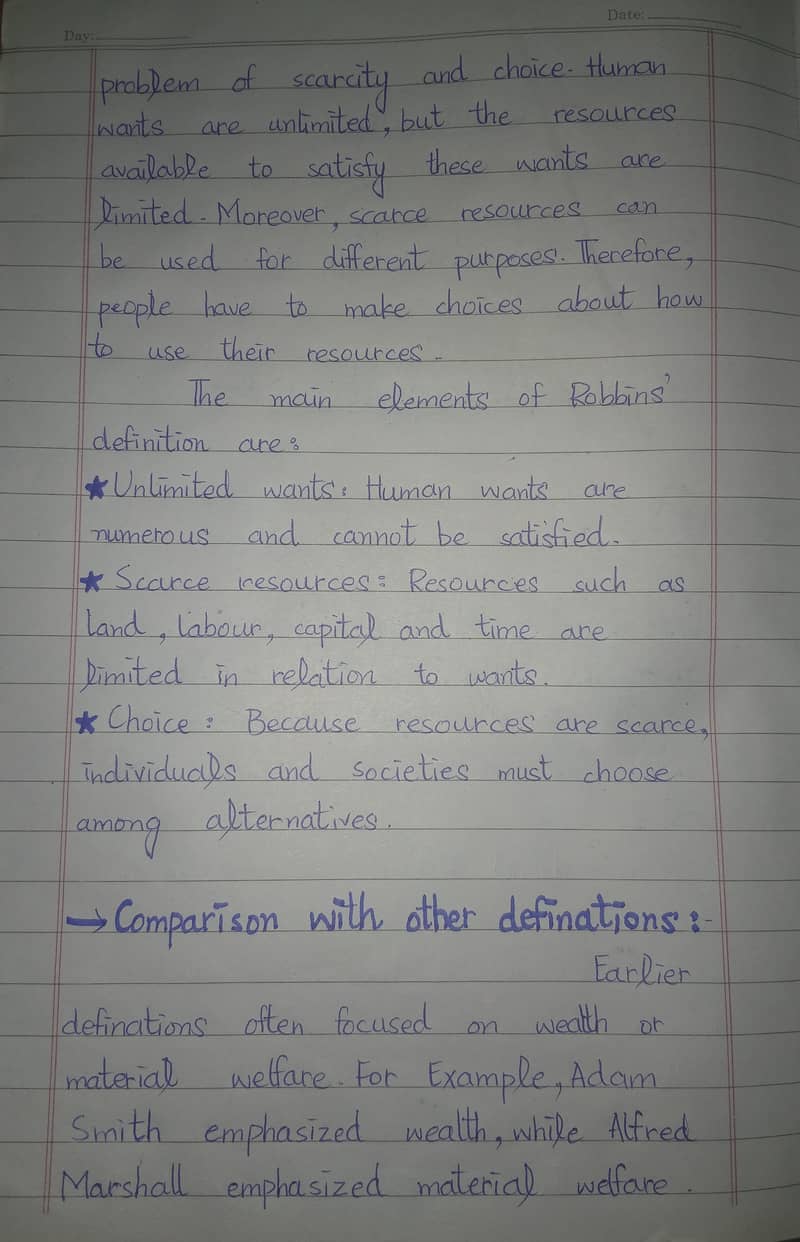 Date:
Day:
problem of scarcity and choice. Human
wants are unlimited, but the resources
available to satisfy these wants are
limited. Moreover, scarce resources can
be used for different purposes. Therefore,
people have to make choices about how
to use their resources.
The main elements of Robbins'
definition are:
★ Unlimited wants: Human wants are
numerous and cannot be satisfied.
★ Scarce resources: Resources such as
land, labour, capital and time are
limited in relation to wants.
★ Choice: Because resources are scarce,
individuals and societies must choose
among alternatives.
→ Comparison with other definations:-
Earlier
definations often focused on wealth or
material welfare. For Example, Adam
Smith emphasized wealth, while Alfred
Marshall emphasized material welfare.